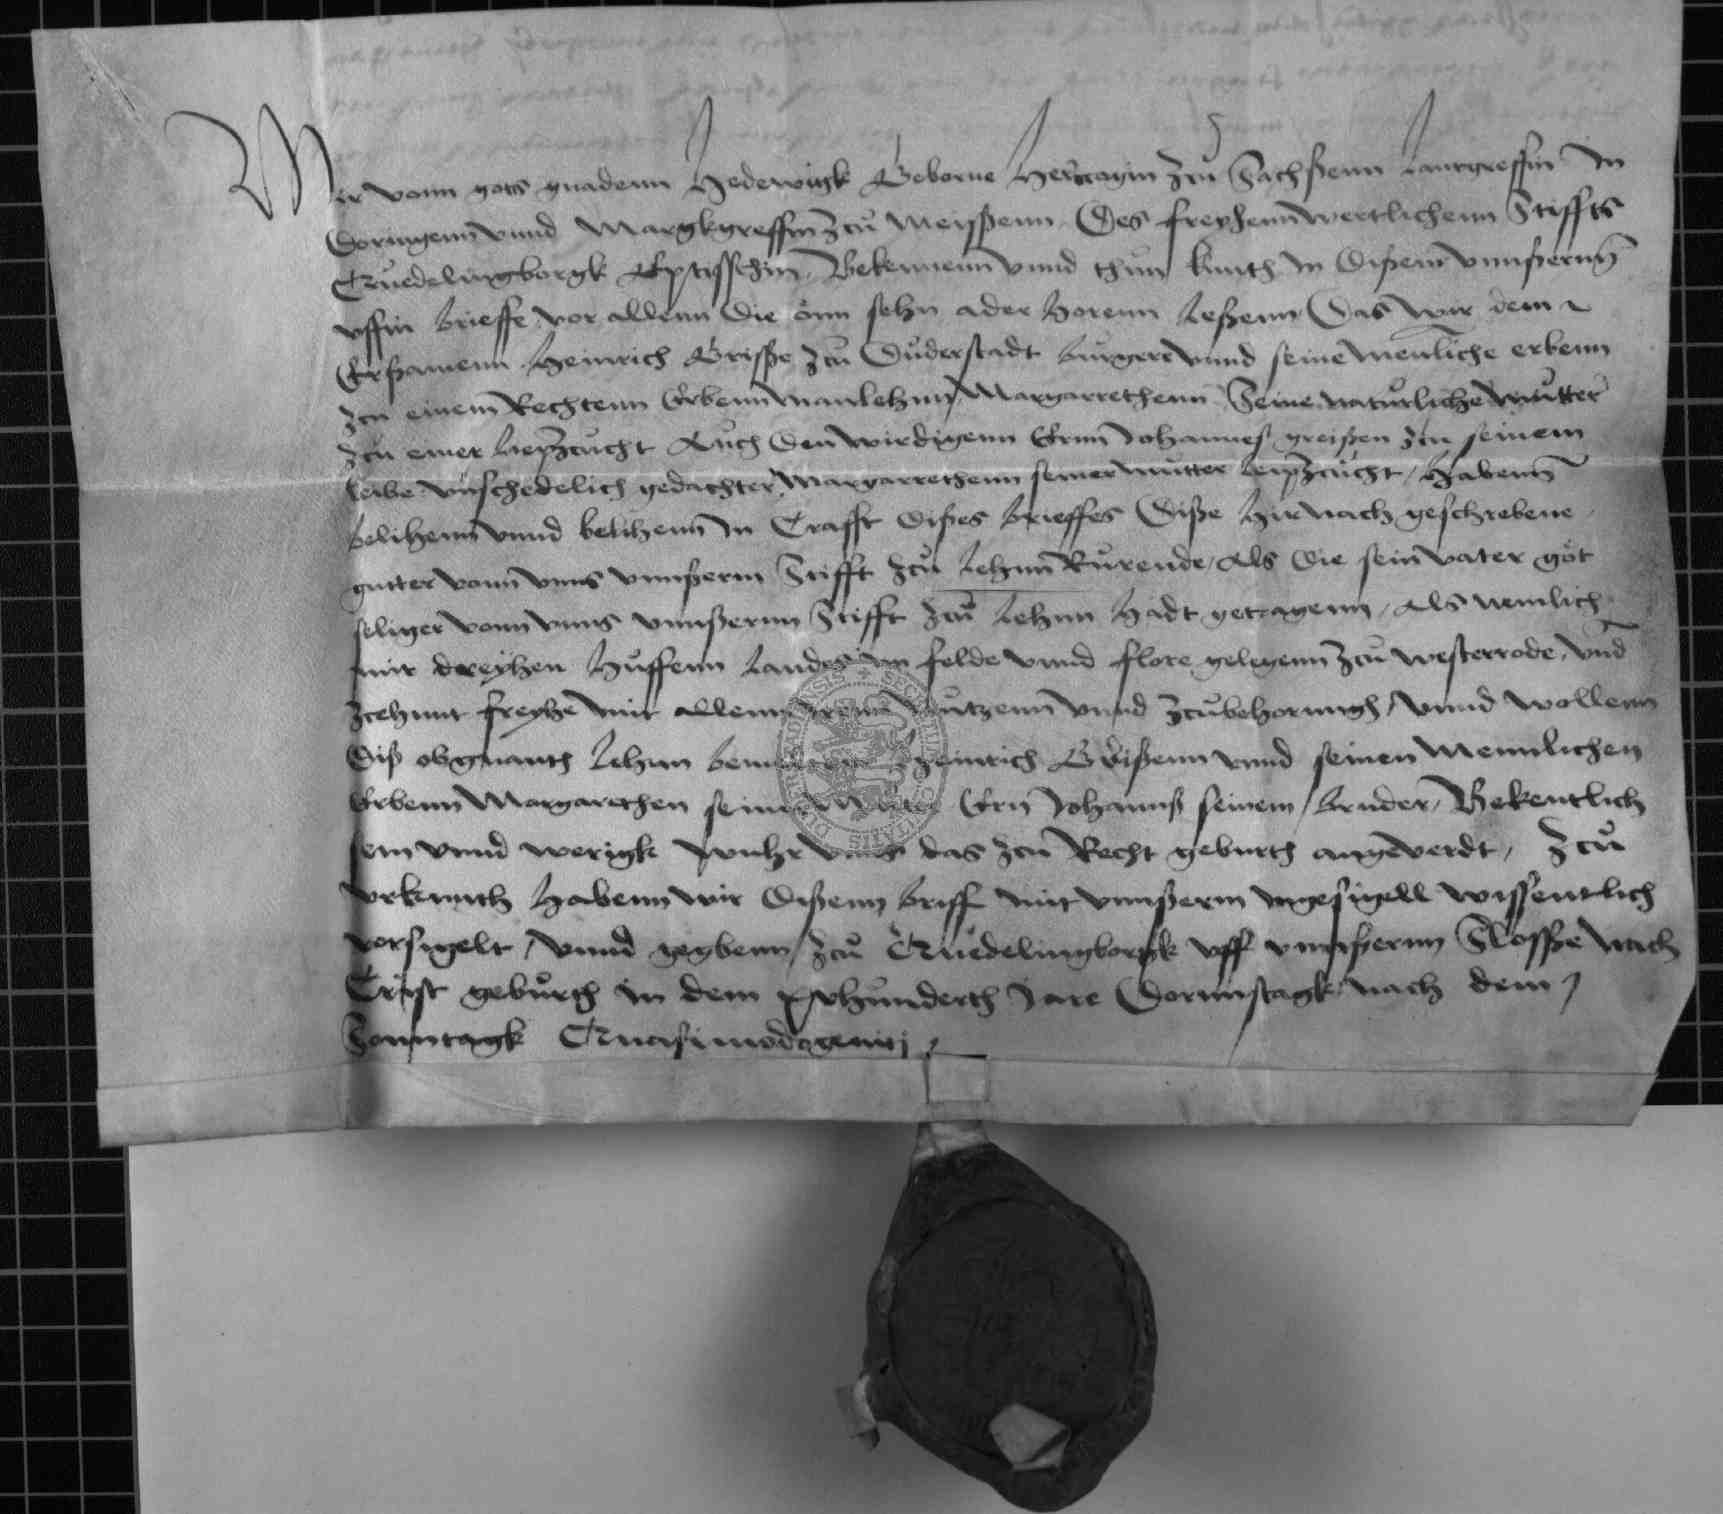 Wir vonn gots gnadenn Hedewigk Geborne Hertzogin zcu Sachßenn Lantgreffin in
Doringenn vnnd Margkgreffin zcu Meissenn des freyhenn wertlichenn Stiffts
Quedelingborgk Eptisschin Bekennenn vnnd thun kunth in dißem vnnßernn
offin brieffe vor allenn die önn sehn ader horenn leßenn das wir dem
Erßamenn Heinrich Griße zcu Duderstadt burgere vnnd seine menliche erbenn
zcu einem Rechtenn Erbenn manlehnn Margarrethenn Seine naturliche mutter
zcu einer liepzcucht Auch den wirdigenn Ernn Johannes greißen zcu seinem
leibe vnschedelich gedachter Margarrethenn seiner mutter leipzcucht / habenn
belihenn vnnd belihenn in Crafft dißes brieffes diße hirnach geschrebene
gutter vonn vnns vnnßerm Stifft zcu lehnn Rurende / als die sein vater got
seliger vonn vnns vnnßernn Stifft zcu lehnn hadt getragenn / als nemlich
mir dreyhen huffenn landes im felde vnnd flore gelegenn zcu westerrode vnd
zcehnnt freyhe mit allenn irenn nutzenn vnnd zcubehorungh / vnnd wollenn
diß obgnanth lehnn Heinrich Grißenn vnnd seinen mennlichen
Erbenn Margarethen seiner Mutter Ern Johannß seinem bruder / Bekentlich
sein vnnd werigk wuhr vnns das zcu Recht geburth angeverdt / Zcu
vrkunth habenn wir dißenn briff mit vnnßerm ingesigell wissentlich
vorsigelt / vnnd gegbenn / zcu Quedelingborgk vff vnnßernn Slosße nach
Crist geburth in dem xvhunderth Jare Dornnstagk nach dem /
Sonntagk Quasimodogeniti